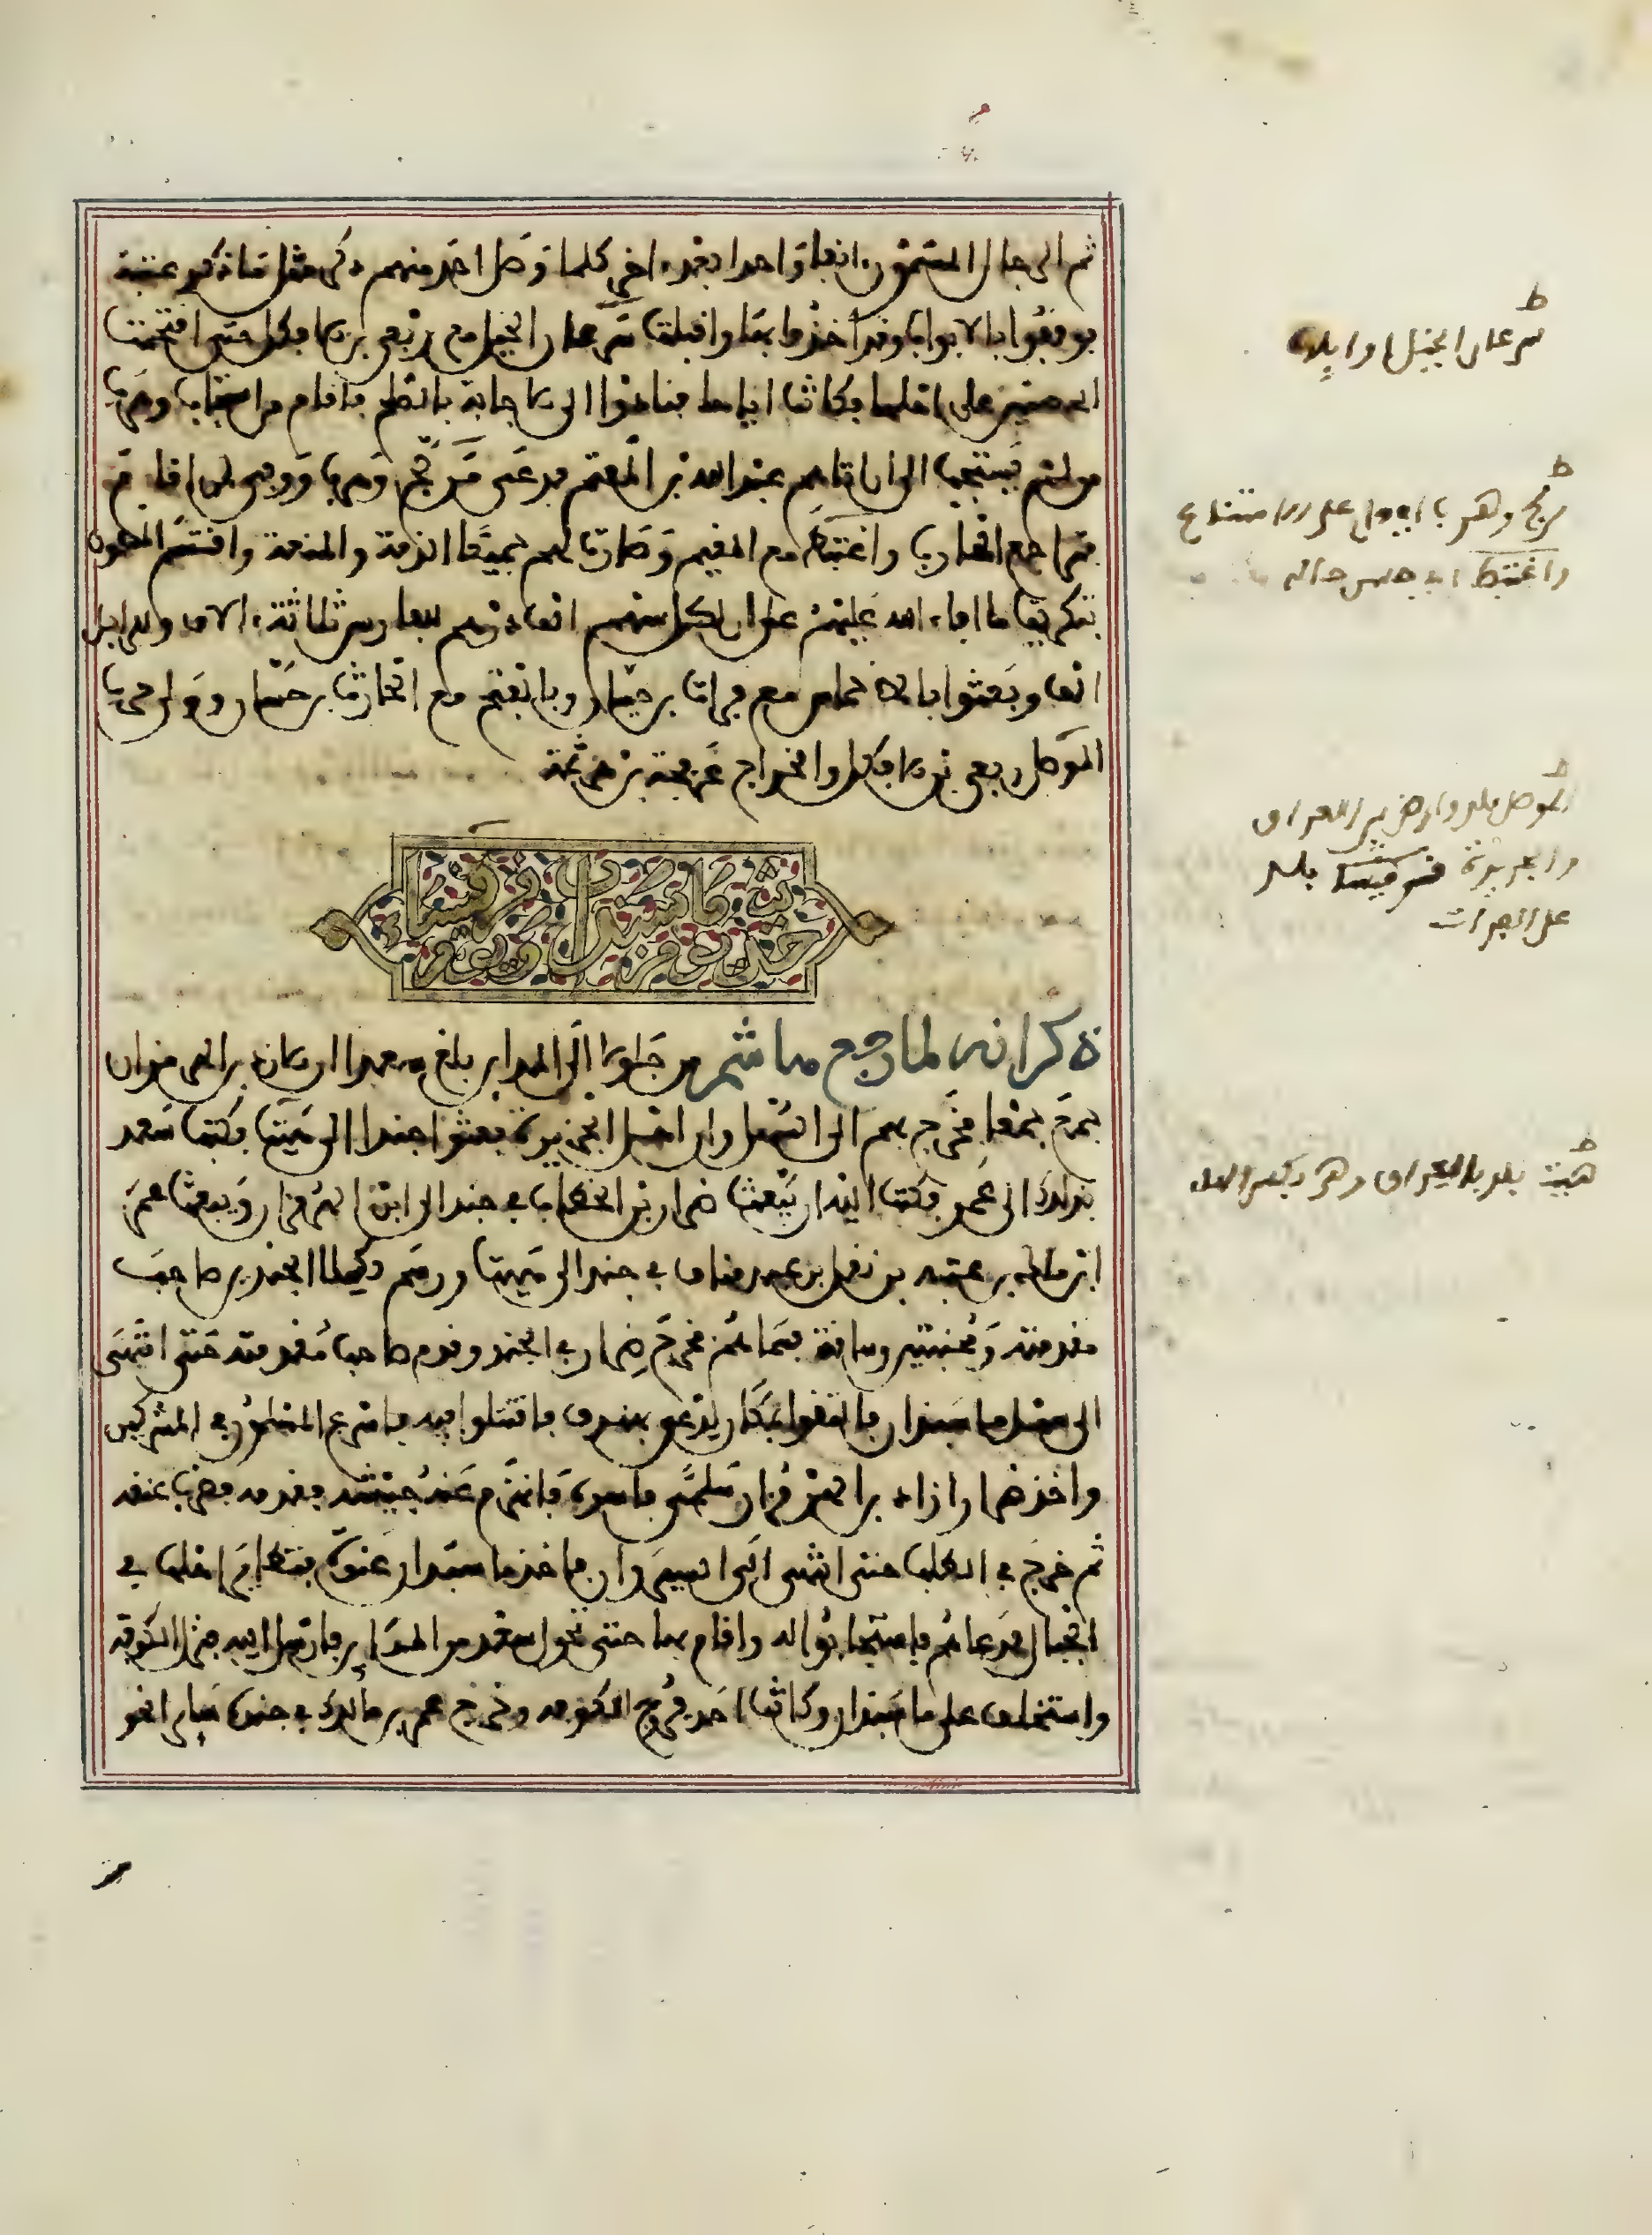 ثم الرجال المسمون انفا واحدا بعد اخر كلما وصل احد منهم ذكر مثل ما ذكر عتبة
فوقفوا بالابواب وقد اخذوا بها واقبلت سرعان الخيل مع ربعي بن الافكل حتى اقتحمت
الحصنين على اهلها فكانت اياها فنادوا الى الاجابة بالصلح فاقام من استجاب وهرب
من لم يستجب الى ان اتاهم عبد الله بن المعتم فدعى من لج وهرب ووفى لمن اقام
فتراجع الهراب واغتبط مع المقيم وصارت لهم جميعا الذمة والمنعة واقتسم
بتكريت ما افاء الله عليهم على ان لكل سهم الف درهم للفارس ثلاثة الاف وللراجل
الف وبعثوا بالاخماس مع فرات بن حيان وبالفتح مع الحارث بن حسان وولى حرب
الموصل ربعي بن الافكل والخراج عرفجة بن هرثمة
حديث فتح ماسبذان وقرقيساء
ذكر انه لما رجع هاشم من جلولا الى المداين بلغ سعدا ان اذين بن الهرمزان
جمع جمعا فخرج بهم الى السهل وان اهل الجزيرة بعثوا جندا الى هيت فكتب سعد
بذلك الى عمر فكتب اليه ان يبعث ضرار بن الخطاب في جند الى ابن الهرمزان ويبعث عمر
ابن مالك بن عتبة بن نوفل بن عبد مناف في جند الى هيت ورسم لكل الجندين صاحب
مقدمته ومجنبتيه وساقته فسماهم فخرج ضرار في الجند وقدم صاحب مقدمته حتى انتهى
الى سهل ماسبذان فالتقوا بمكان يدعى بهندف فاقتتلوا فيه فاسرع المسلمون في المشركين
واخذ ضرار اذين بن الهرمزان سلما فاسره فانهزم عنه جيشه فقدمه فضرب عنقه
ثم خرج في الطلب حتى انتهى الى السيروان فاخذ ماسبذان عنوة فتطاير اهلها في
الجبال فدعاهم فاستجابوا له واقام بها حتى تحول سعد من المداين فارسل اليه فنزل الكوفة
واستخلف على ماسبذان وكانت احد فروج الكوفة وخرج عمر بن مالك في جنده سايرا نحو
ط
سرعان الخيل اوايلها
ط
لج وهو بالجيم على الامتناع
واغتبط اي حسن حاله
ط
الموصل بلد وارض بين العراق
والجزيرة قرقيسا بلد
على الفرات
ط
هيت بلد بالعراق وهو بكسر الهاء